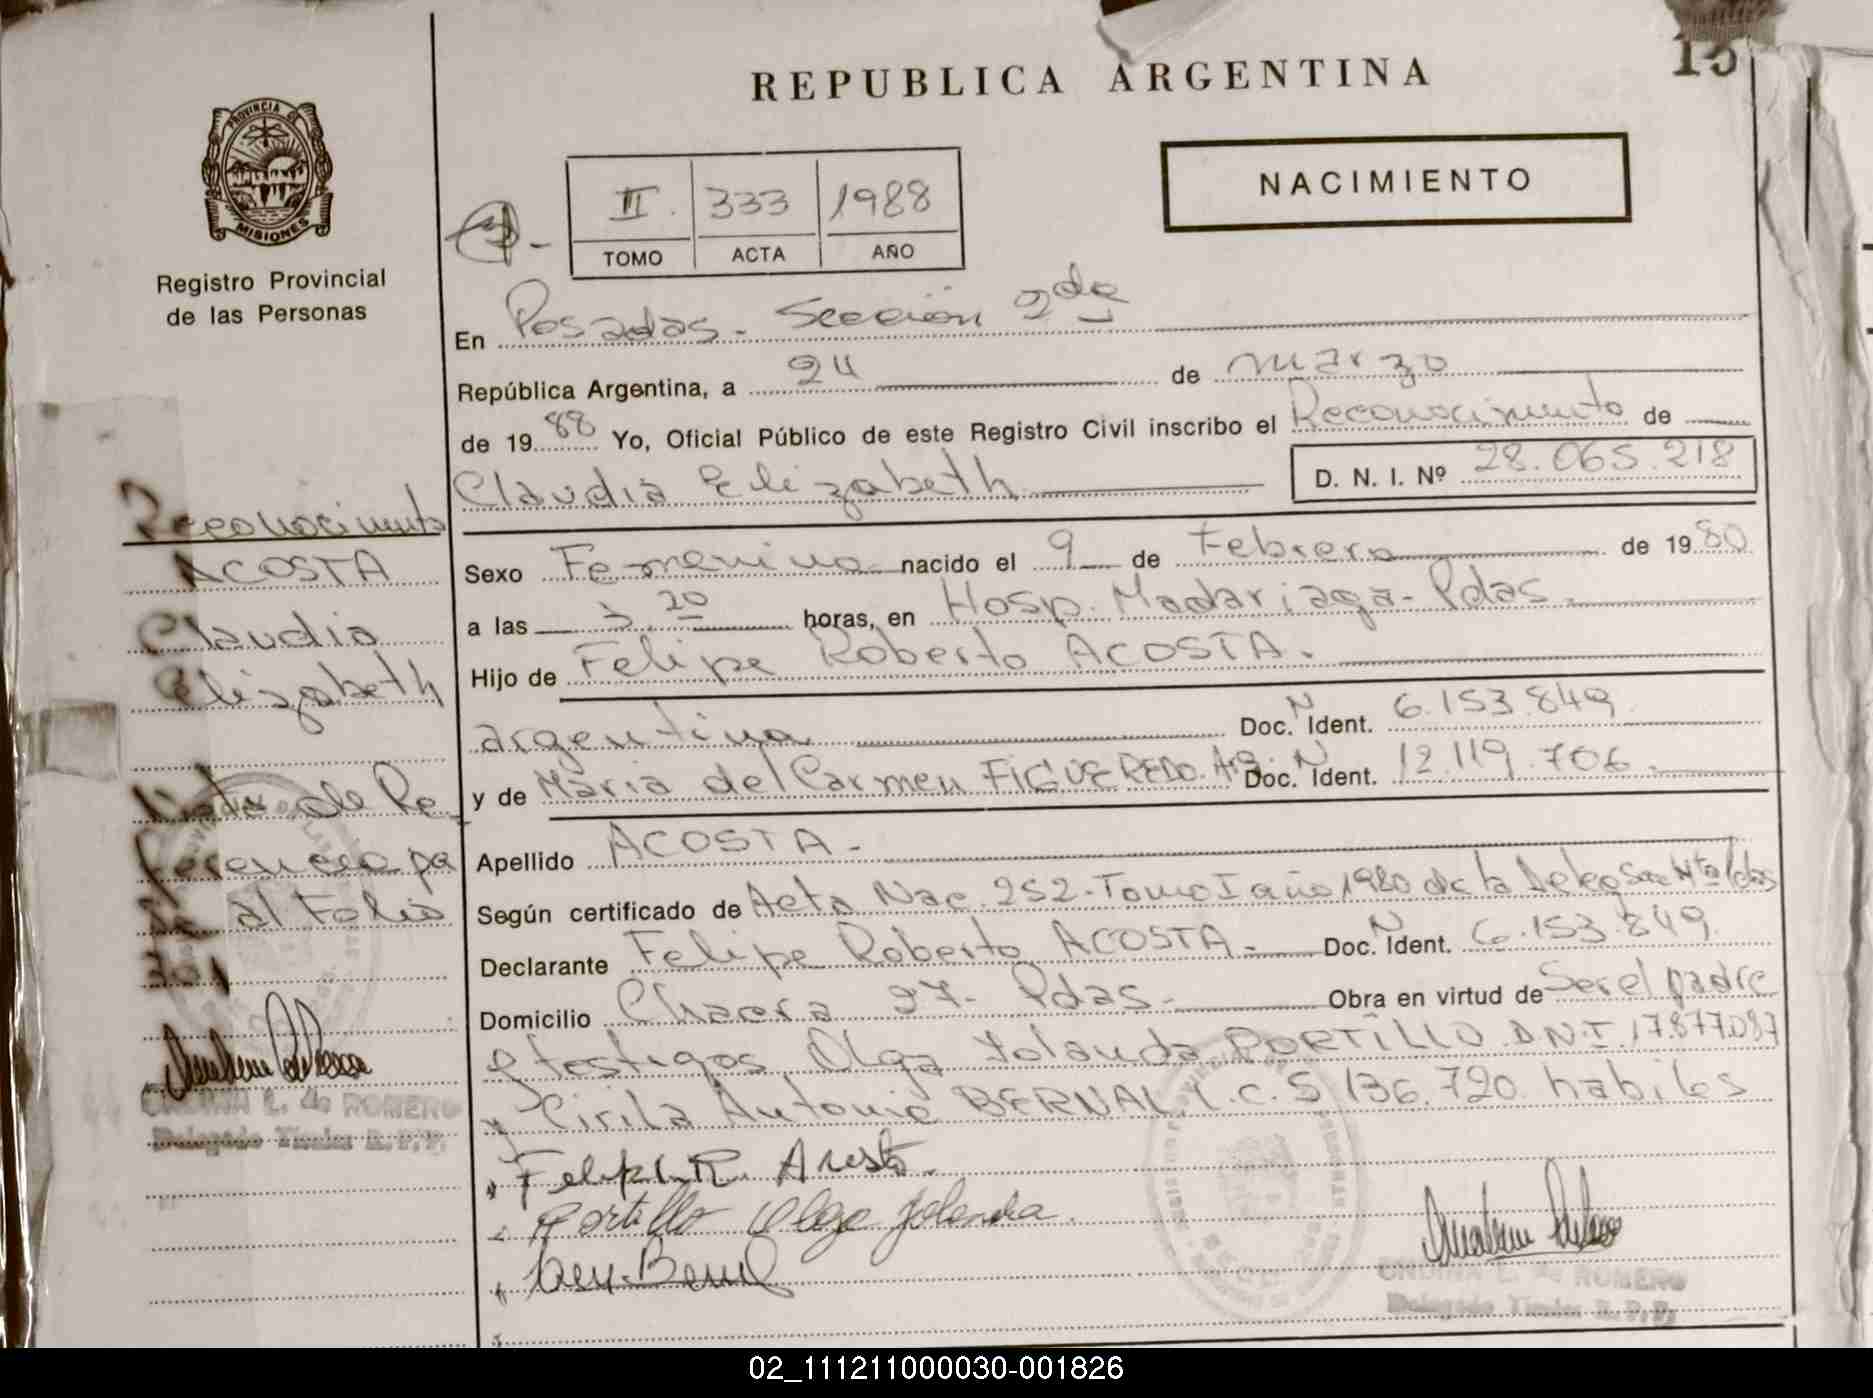 REPUBLICA ARGENTINA
15
PROVINCIA DE
MISIONES
Registro Provincial
de las Personas
II. 333 1988
TOMO ACTA AÑO
NACIMIENTO
En Posadas - Sección 2da
República Argentina, a 24 de marzo
de 1988 Yo, Oficial Público de este Registro Civil inscribo el Reconocimiento de
Claudia Elizabeth D. N. I. Nº 28.065.218
Sexo Femenino nacido el 9 de Febrero de 1980
a las 3.20 horas, en Hosp. Madariaga - Pdas.
Hijo de Felipe Roberto ACOSTA.
argentina Doc. N Ident. 6.153.849
y de Maria del Carmen FIGUEREDO. Arg. Doc. N Ident. 12.119.706.
Apellido ACOSTA -
Según certificado de Acta Nac. 252 - Tomo I año 1980 de la Deleg Sec Pdas
Declarante Felipe Roberto ACOSTA - Doc. N Ident. 6.153.849.
Domicilio Chacra 97 - Pdas - Obra en virtud de Ser el padre
testigos Olga Yolanda PORTILLO D.N.I. 17.877.087
y Cirila Antonia BERNAL L.C. 5 136.720 habiles
Portillo Olga Yolanda.
ONDINA L. de ROMERO
Delegado Titular R.P.P.
Reconocimiento
ACOSTA
Claudia
Elizabeth
Nota de Re
ferencia pa
sa al Folio
ONDINA L. de ROMERO
Delegado Titular R.P.P.
02_111211000030-001826